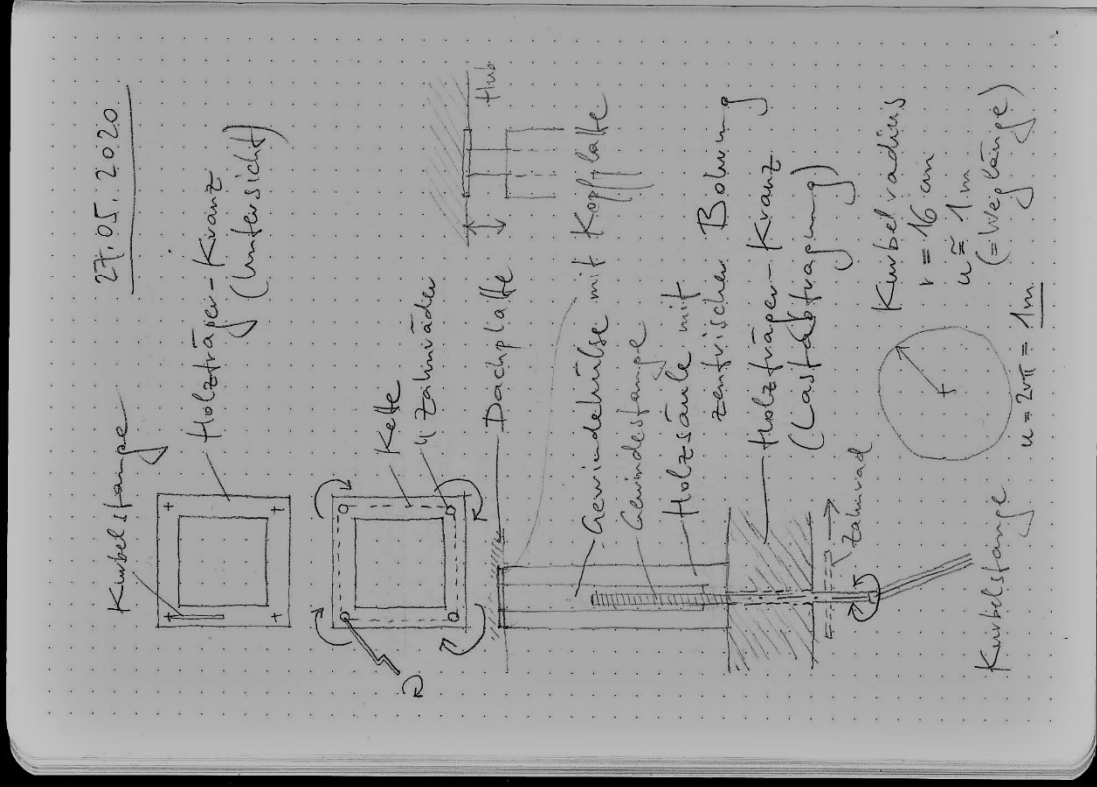 27.05.2020
Kurbelstange
Holzträger-Kranz
(Untersicht)
Kette
4 Zahnräder
Hub
Dachplatte
Gewindehülse mit Kopfplatte
Gewindestange
Holzsäule mit
zentrischer Bohrung
Holzträger-Kranz
(Lastabtragung)
Zahnrad
Kurbelstange
Kurbelradius
r = 16 cm
u ≅ 1 m
(= Weglänge)
u = 2rπ = 1m